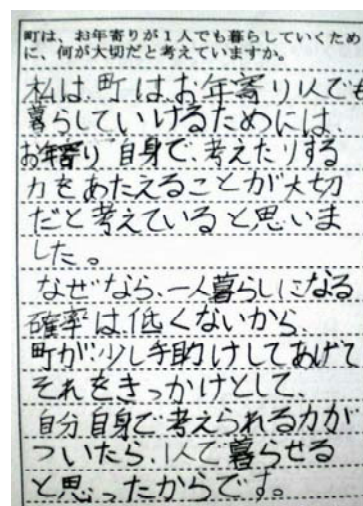 町は、お年寄りが１人でも暮らしていくため
に、何が大切だと考えていますか。
私は、町は、お年寄り1人でも
暮らしていけるためには、
お年寄り自身で、考えたりする
力をあたえることが大切
だと考えていると思いま
した。
なぜなら、一人暮らしになる
確率は低くないから、
町が少し手助けしてあげて
それをきっかけとして、
自分自身で考えられる力が
ついたら、1人で暮らせる
と思ったからです。